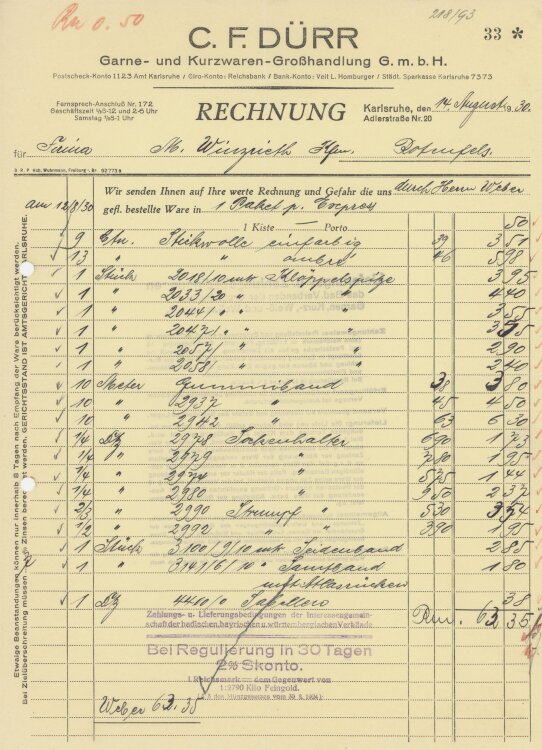 Rm 0.50
218/93
33 *
C. F. DÜRR
Garne- und Kurzwaren-Großhandlung G. m. b. H.
Postscheck-Konto 1123 Amt Karlsruhe / Giro-Konto: Reichsbank / Bank-Konto: Veit L. Homburger / Städt. Sparkasse Karlsruhe 7373
Fernsprech-Anschluß Nr. 172
Geschäftszeit ½8-12 und 2-6 Uhr
Samstag ½8-1 Uhr
RECHNUNG
Karlsruhe, den 14. August 1930.
Adlerstraße Nr. 20
für Firma M. Winzrieth Kfm. Rotenfels.
Wir senden Ihnen auf Ihre werte Rechnung und Gefahr die uns durch Herrn Weber
am 12/8/30 gefl. bestellte Ware in 1 Paket p. Express
1 Kiste Porto 50
9 Ctn. Stickwolle einfarbig 39 3 51
13 " " ombré 46 5 98
1 Stück 2018/10 mtr Klöppelspitze 3 95
1 " 2033/20 " " 4 40
1 " 2044/ " " 3 55
1 " 2047/ " "
1 " 2057/ " " 2 90
1 " 2058/ " " 2 40
10 Meter Gummiband 38 3 80
10 " 2937 " 45 4 50
10 " 2942 " 63 6 30
1/4 Dz 2978 Sockenhalter 690 1 73
1/4 " 2979 " 780 1 95
1/4 " 2974 " 575 1 44
1/4 " 2980 " 950 2 37
2/3 " 2990 Strumpf " 530 3 54
1/2 " 2992 " 390 1 95
1 Stück 3100/9/10 mtr Seidenband 2 85
1 " 3141/6/10 " Samtband 1 80
mit Atlasrücken
1 Dz 4410/0 38
Rm. 63 35
Zahlungs- u. Lieferungsbedingungen der Interessengemein-
schaft der badischen, bayrischen u. württembergischen Verbände
Bei Regulierung in 30 Tagen
2% Skonto.
1 Reichsmark = dem Gegenwert von
1:2790 Kilo Feingold.
Weber 63.35
Etwaige Beanstandungen können nur innerhalb 8 Tagen nach Empfang der Ware berücksichtigt werden.
Bei Zielüberschreitung müssen Zinsen berechnet werden. GERICHTSSTAND IST AMTSGERICHT KARLSRUHE.